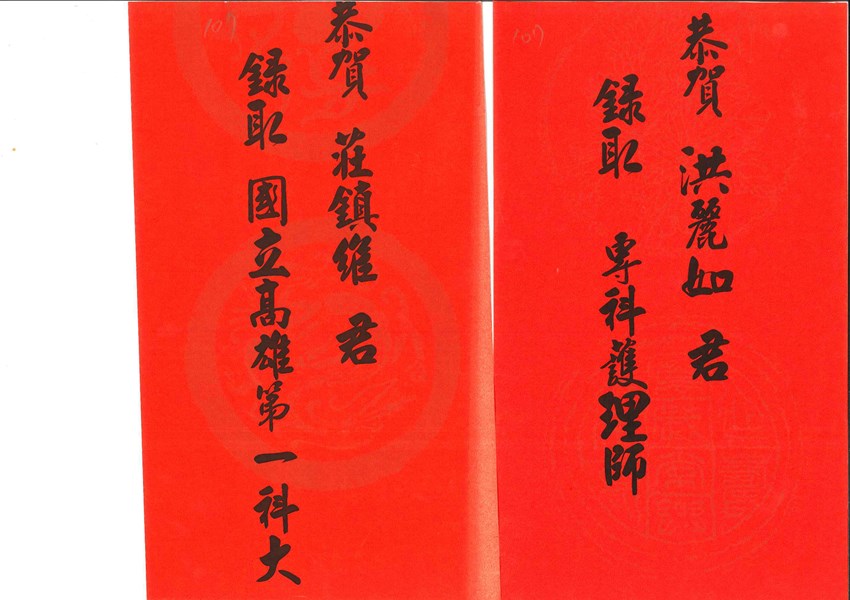 107
恭賀 洪麗如 君
錄取 專科護理師
107
恭賀 莊鎮維 君
錄取 國立高雄第一科大